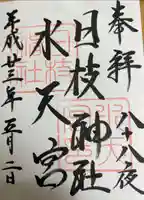 奉拝 八十八夜
日枝神社
水天宮
平成廿三年五月二日